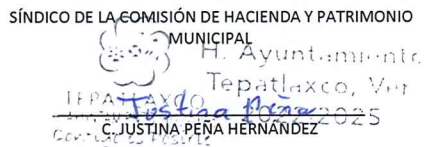 SÍNDICO DE LA COMISIÓN DE HACIENDA Y PATRIMONIO
MUNICIPAL
H. Ayuntamiento
Tepatlaxco, Ver
TEPATLAXCO
2022-2025
Justina Peña
C. JUSTINA PEÑA HERNÁNDEZ